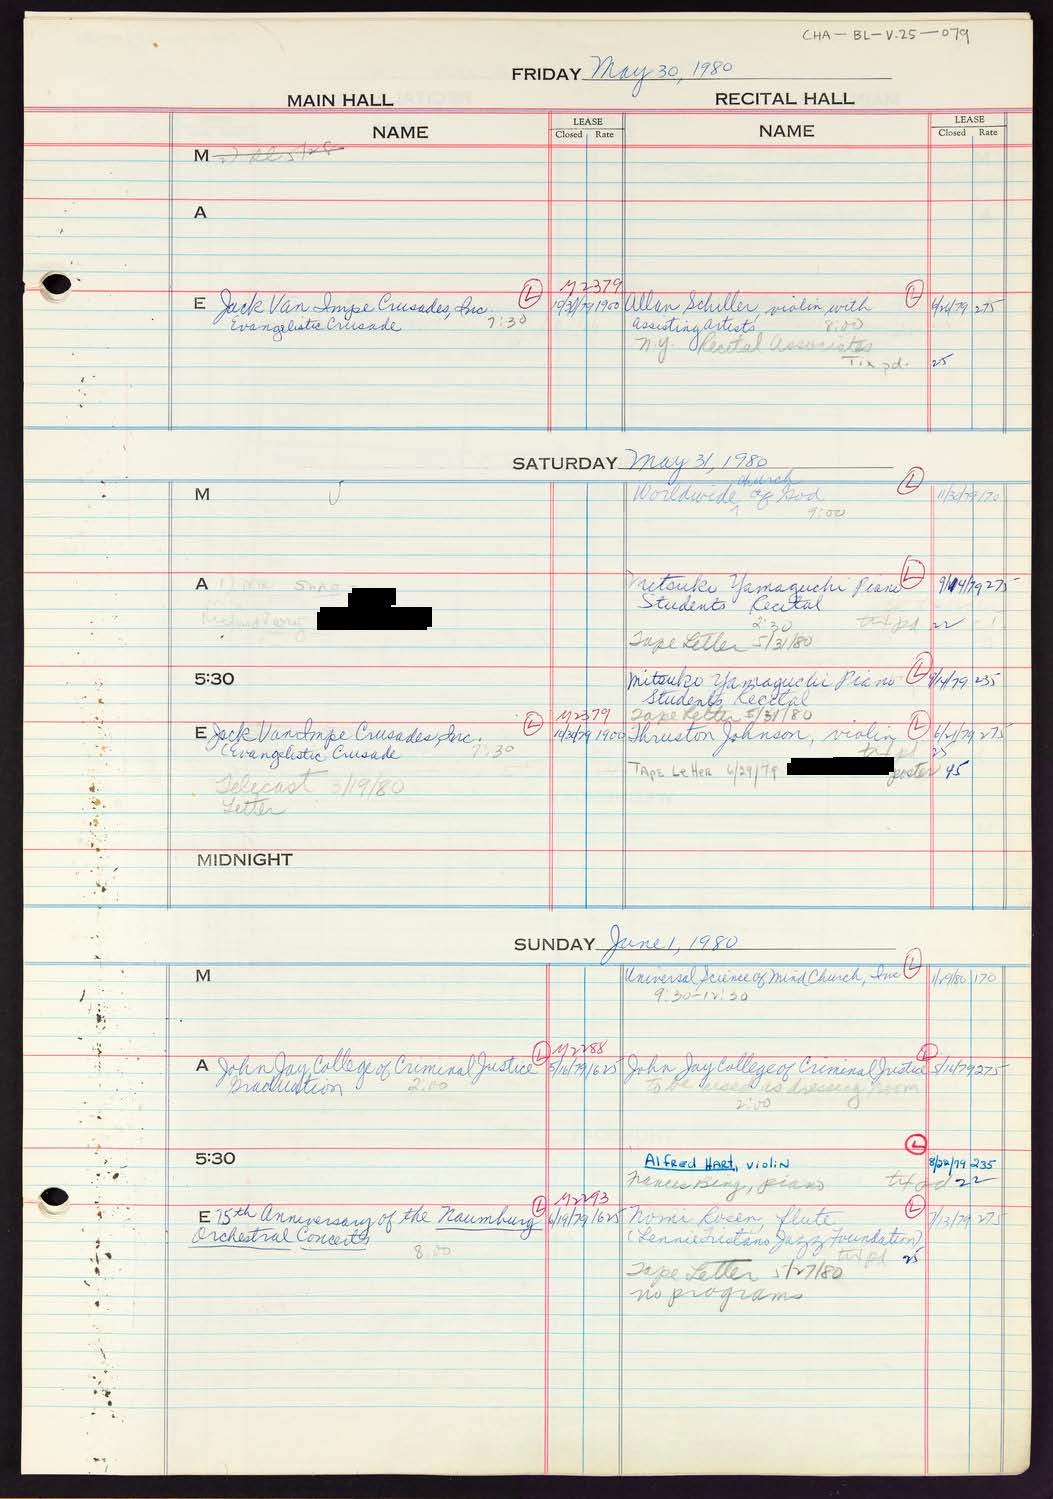 CHA-BL-V.25-079
FRIDAY May 30, 1980
MAIN HALL
RECITAL HALL
NAME
LEASE
Closed Rate
NAME
LEASE
Closed Rate
M
A
M2379
E Jack Van Impe Crusades, Inc. L 10/31/79 1900
Evangelistic Crusade 7:30
Allan Schiller, violin with L 6/21/79 275
assisting artists 8:00
N.Y. Recital Associates
Tix pd. 25
SATURDAY May 31, 1980
M
church
Worldwide ^ of God L 11/30/79 170
9:00
A
Mitsuko Yamaguchi Piano L 9/14/79 275
Students Recital
2:30 tix pd 22
Tape Letter 5/31/80
5:30
Mitsuko Yamaguchi Piano L 9/14/79 235
Students Recital
Tape Letter 5/31/80
M2379
E Jack Van Impe Crusades, Inc. L 10/31/79 1900
Evangelistic Crusade 7:30
Telecast 3/19/80
Letter
Thruston Johnson, violin L 6/21/79 275
tix pd 25
TAPE LetteR 6/29/79 poster 45
MIDNIGHT
SUNDAY June 1, 1980
M
Universal Science of Mind Church, Inc L 1/29/80 170
9:30-12:30
M2288
A John Jay College of Criminal Justice L 5/16/79 1625
Graduation 2:00
John Jay College of Criminal Justice L 5/16/79 275
to be used as dressing room
2:00
5:30
L
Alfred Hart, violin 8/28/79 235
Frances Bing, piano tix pd 22
M2293
E 75th Anniversary of the Naumburg L 6/19/79 1625
Orchestral Concerts
8:00
Nomi Rosen, flute L 7/13/79 275
(Lennie Tristano Jazz Foundation)
tix pd 25
Tape Letter 5/27/80
no programs